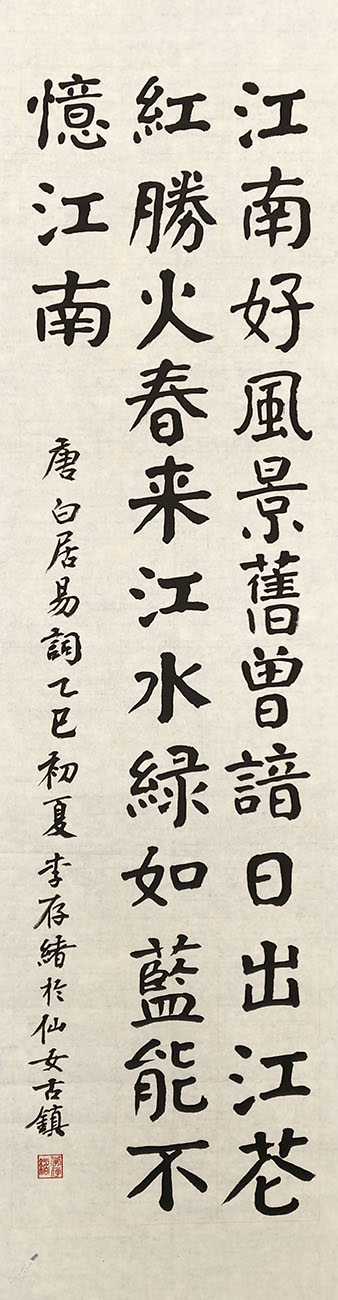 江南好風景舊曾諳日出江花
紅勝火春来江水綠如藍能不
憶江南
唐白居易詞乙巳初夏李存緒於仙女古鎮